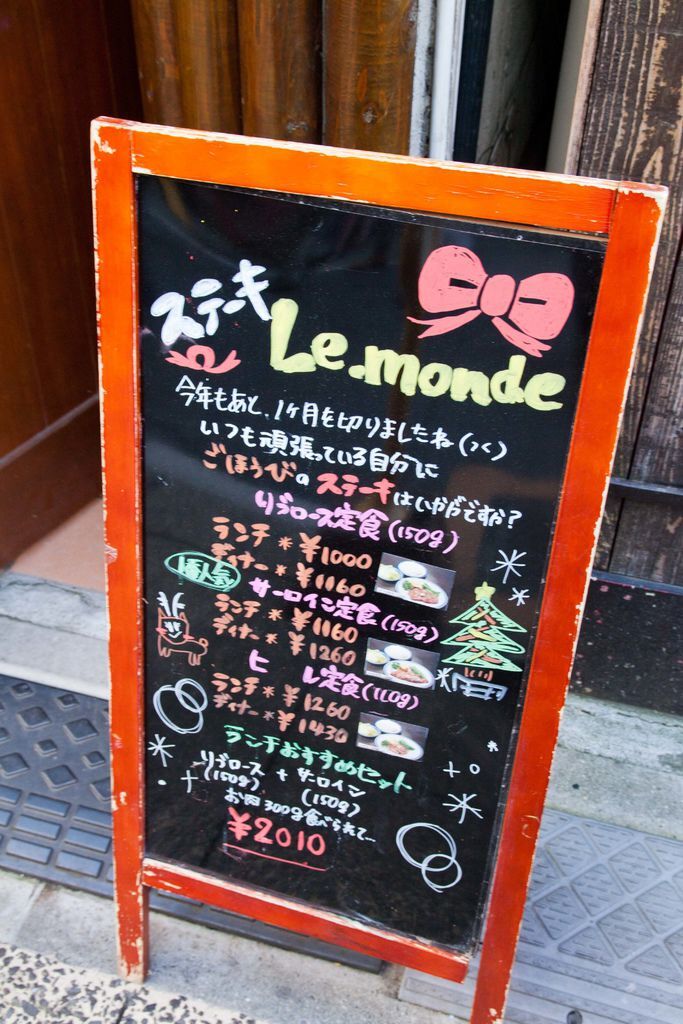 ステーキ
Le.monde
今年もあと、1ヶ月を切りましたね
いつも頑張っている自分に
ごほうびの ステーキはいかがですか?
リブロース定食(150g)
ランチ * ¥1000
ディナー * ¥1160
1番人気
サーロイン定食(150g)
ランチ * ¥1160
ディナー * ¥1260
ヒレ定食(110g)
ランチ * ¥1260
ディナー * ¥1430
ランチおすすめセット
リブロース + サーロイン
(150g) (150g)
お肉300g食べられて…
¥2010